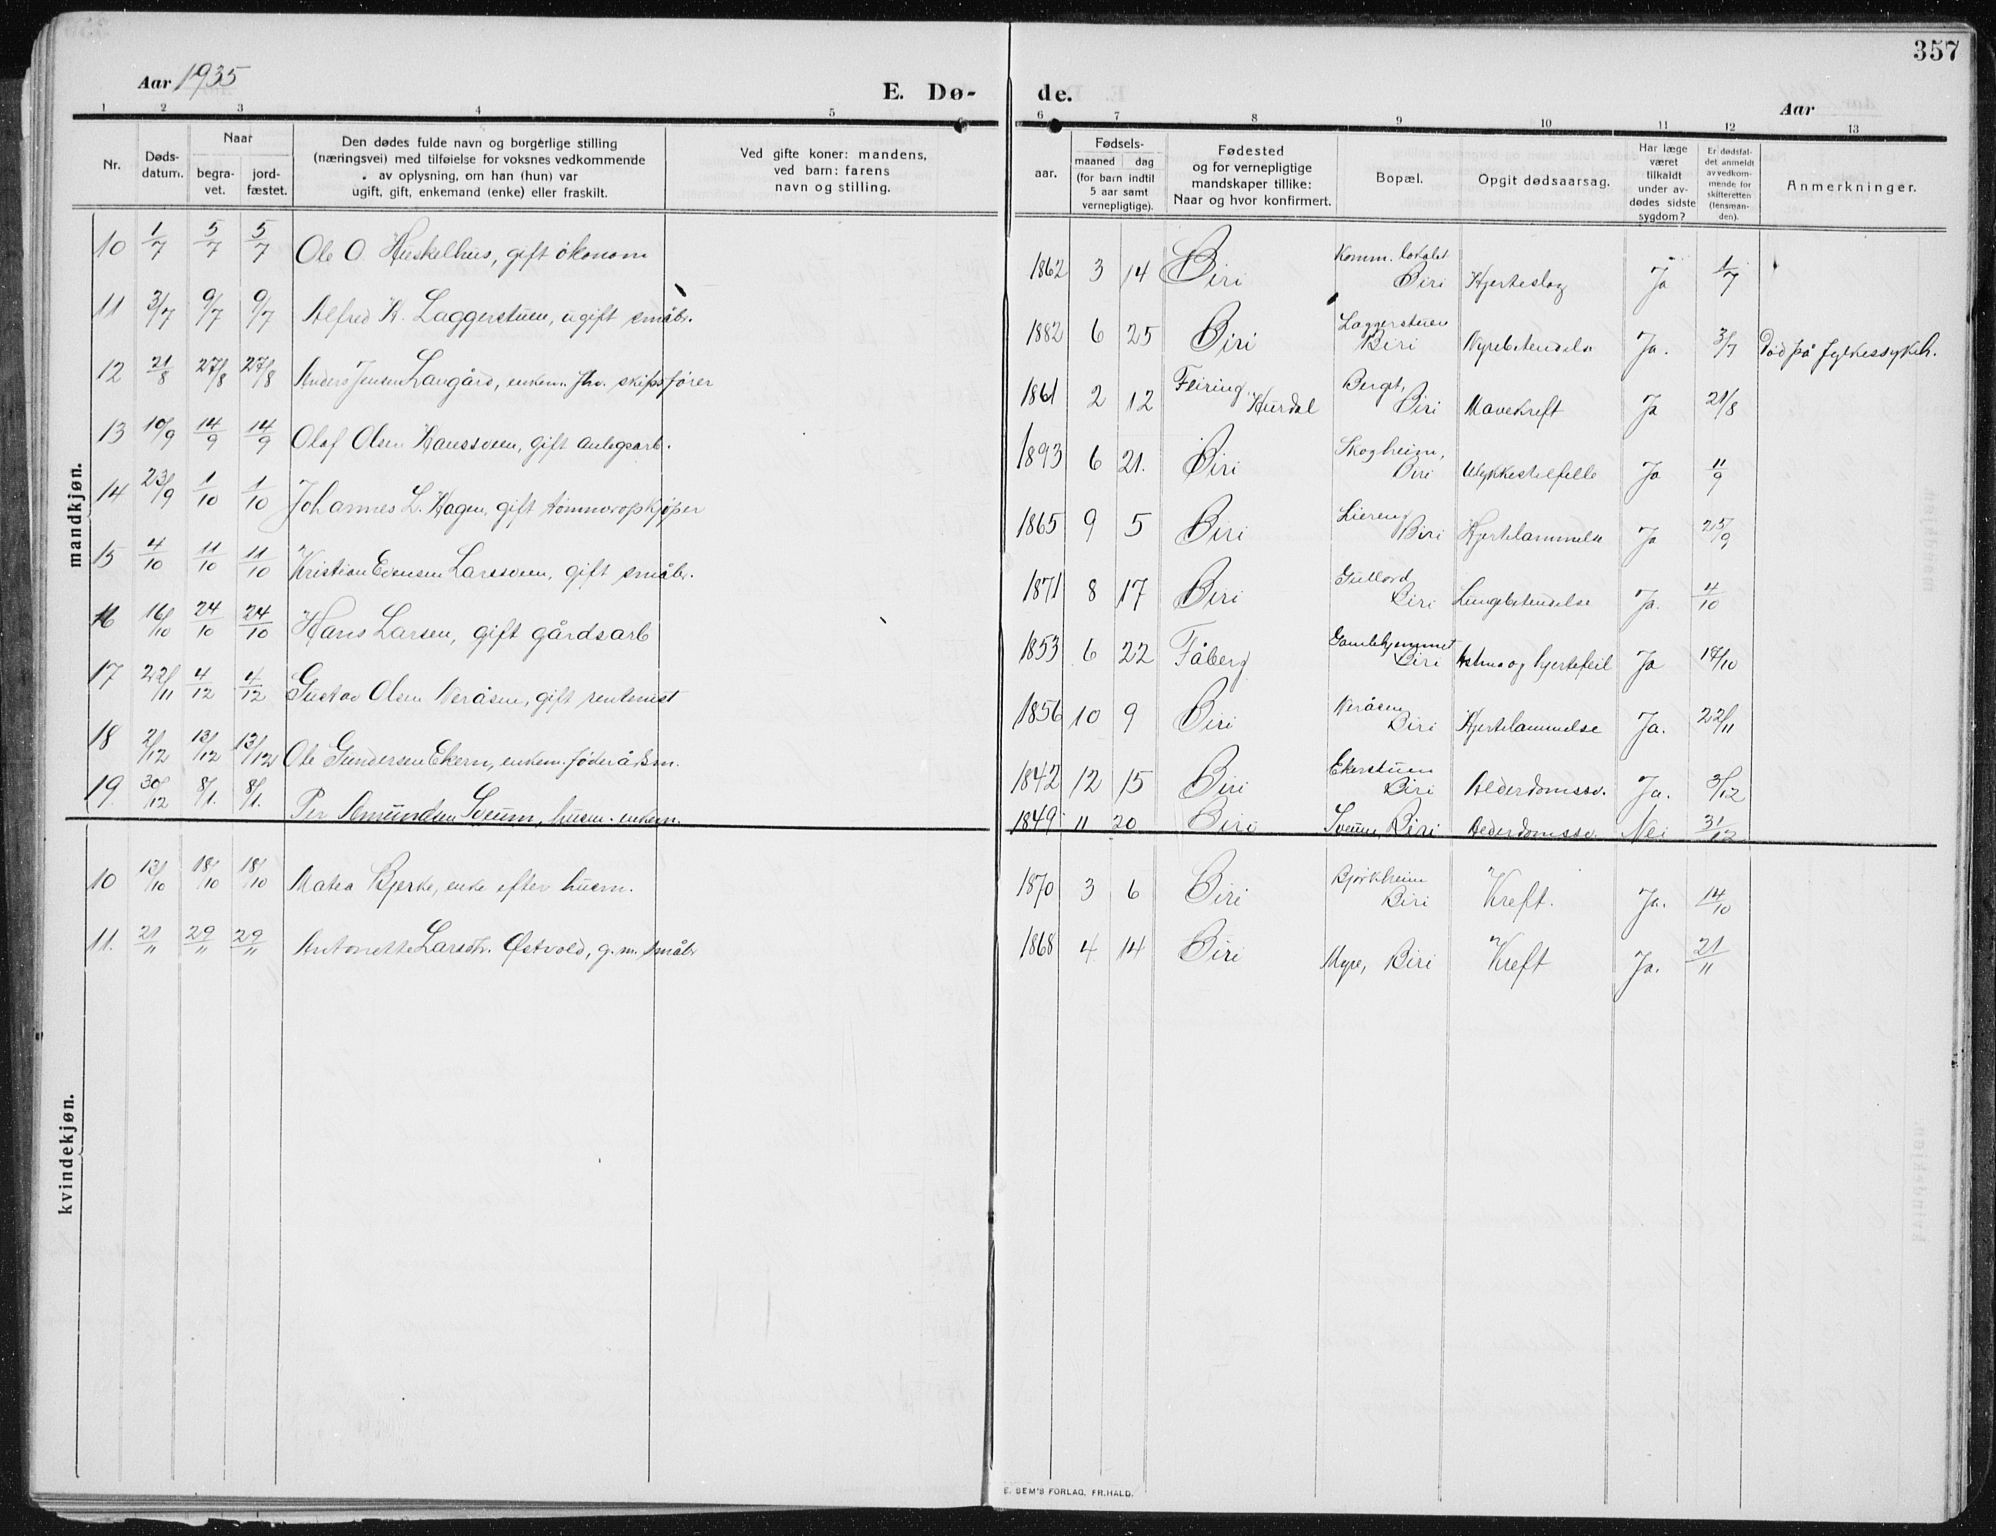 357
Aar 1935
E. Dø-
de.
Aar
1 2 3 4 5 6 7 8 9 10 11 12 13
Nr.
Døds-
datum.
Naar
begra-
vet.
jord-
fæstet.
Den dødes fulde navn og borgerlige stilling
(næringsvei) med tilføielse for voksnes vedkommende
av oplysning, om han (hun) var
ugift, gift, enkemand (enke) eller fraskilt.
Ved gifte koner: mandens,
ved barn: farens
navn og stilling.
Fødsels-
aar.
maaned | dag
(for barn indtil
5 aar samt
vernepligtige).
Fødested
og for vernepligtige
mandskaper tillike:
Naar og hvor konfirmert.
Bopæl.
Opgit dødsaarsag.
Har læge
været
tilkaldt
under av-
dødes sidste
sygdom?
Er dødsfal-
det anmeldt
av vedkom-
mende for
skifteretten
(lensman-
den).
Anmerkninger.
mandkjøn.
10 1/7 5/7 5/7 Ole O. Huskelhus, gift økonom 1862 3 14 Biri Komm. lokalet Biri Hjerteslag Ja 1/7
11 3/7 9/7 9/7 Alfred K. Laggerstuen, ugift småbr. 1882 6 25 Biri Laggerstuen Biri Nyrebetendelse Ja. 3/7 Død på fylkessykeh.
12 21/8 27/8 27/8 Anders Jensen Langård, enkem. fhv. skipsfører 1861 2 12 Feiring, Hurdal Berget, Biri Mavekreft Ja 21/8
13 10/9 14/9 14/9 Olaf Olsen Hanssveen, gift anlegsarb. 1893 6 21. Biri Skogheim, Biri Ulykkestilfelle Ja 11/9
14 23/9 1/10 1/10 Johannes L. Hagen, gift tømmeropkjøper 1865 9 5 Biri Liereng Biri Hjertelammelse Ja 25/9
15 4/10 11/10 11/10 Kristian Evensen Larssveen, gift småbr. 1871 8 17 Biri Gullord Biri Lungebetendelse Ja. 4/10
16 16/10 24/10 24/10 Hans Larsen, gift gårdsarb 1853 6 22 Fåberg Gamlehjemmet Biri Astma og hjertefeil Ja 17/10
17 22/11 4/12 4/12 Gustav Olsen Neråsen, gift rentenist 1856 10 9 Biri Neråsen Biri Hjertelammelse Ja. 22/11
18 2/12 13/12 13/12 Ole Gundersen Ekern, enkem. føderåsm. 1842 12 15 Biri Ekerstuen Biri Alderdomssv. Ja. 3/12
19. 30/12 8/1. 8/1. Per Amundsen Sveum, husm. enkem. 1849 11 20 Biri Sveum, Biri Alderdomssv. Nei 31/12
kvindekjøn.
10 13/10 18/10 18/10 Matea Bjerke, enke efter husm. 1870 3 6 Biri Bjørkheim Biri Kreft. Ja. 14/10
11. 21/11 29/11 29/11 Antonette Larsdtr. Østvold, g.m. småbr 1868 4 14 Biri Myre, Biri Kreft Ja. 21/11
E. SEM'S FORLAG, FR.HALD.